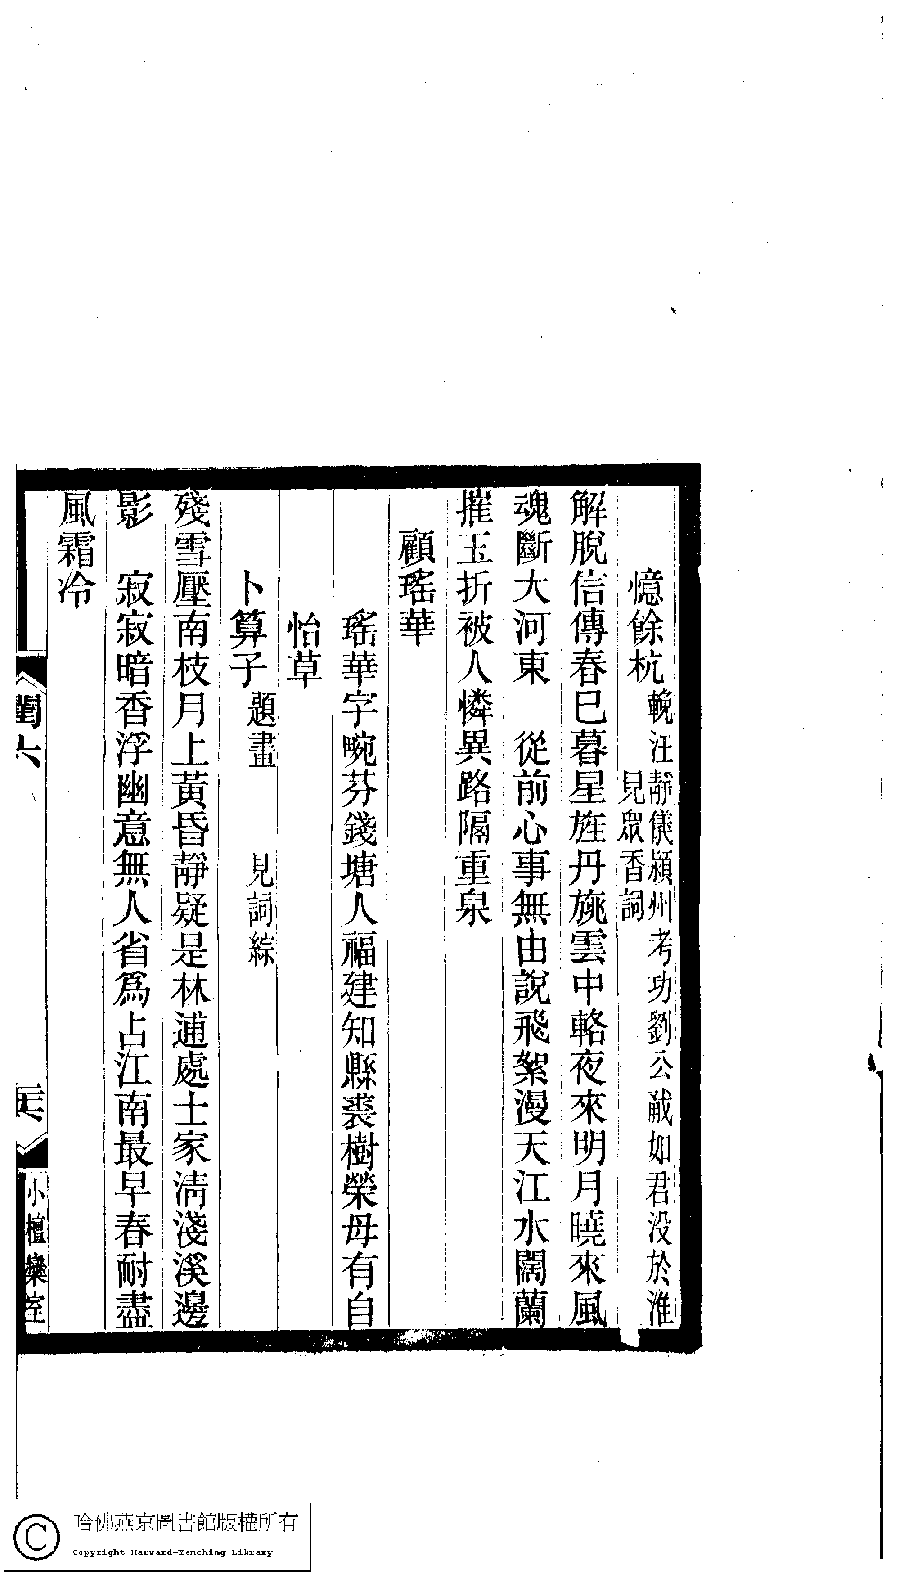 憶餘杭 輓汪靜儀潁州考功劉公㦸如君没於淮
見眾香詞
解脫信傳春已暮星旌丹旐雲中輅夜來明月曉來風
魂斷大河東　從前心事無由說飛絮漫天江水闊蘭
摧玉折被人憐異路隔重泉
顧瑤華
瑤華字畹芬錢塘人福建知縣裘樹榮母有自
怡草
卜算子 題畫　見詞綜
殘雪壓南枝月上黃昏靜疑是林逋處士家淸淺溪邊
影　寂寂暗香浮幽意無人省爲占江南最早春耐盡
風霜冷
閨六
小檀欒室
哈佛燕京圖書館版權所有
Copyright Harvard-Yenching Library